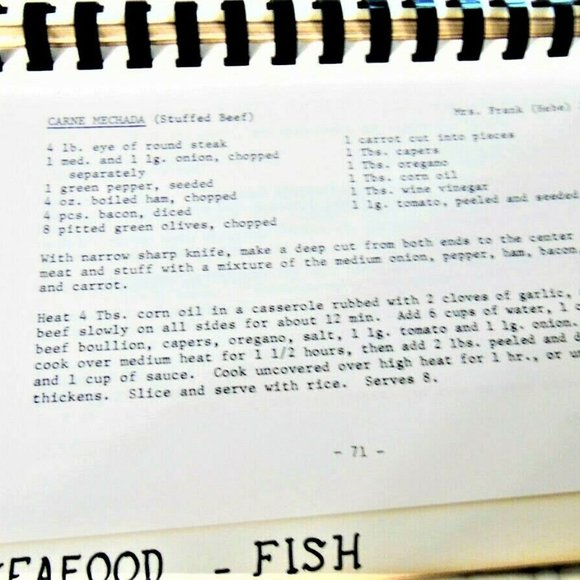 CARNE MECHADA (Stuffed Beef)
Mrs. Frank (Hebe)
4 lb. eye of round steak
1 med. and 1 lg. onion, chopped
separately
1 green pepper, seeded
4 oz. boiled ham, chopped
4 pcs. bacon, diced
8 pitted green olives, chopped
1 carrot cut into pieces
1 Tbs. capers
1 Tbs. oregano
1 Tbs. corn oil
1 Tbs. wine vinegar
1 lg. tomato, peeled and seeded
With narrow sharp knife, make a deep cut from both ends to the center
meat and stuff with a mixture of the medium onion, pepper, ham, bacon
and carrot.
Heat 4 Tbs. corn oil in a casserole rubbed with 2 cloves of garlic,
beef slowly on all sides for about 12 min. Add 6 cups of water, 1 c
beef boullion, capers, oregano, salt, 1 lg. tomato and 1 lg. onion.
cook over medium heat for 1 1/2 hours, then add 2 lbs. peeled and d
and 1 cup of sauce. Cook uncovered over high heat for 1 hr., or u
thickens. Slice and serve with rice. Serves 8.
- 71 -
EAFOOD - FISH